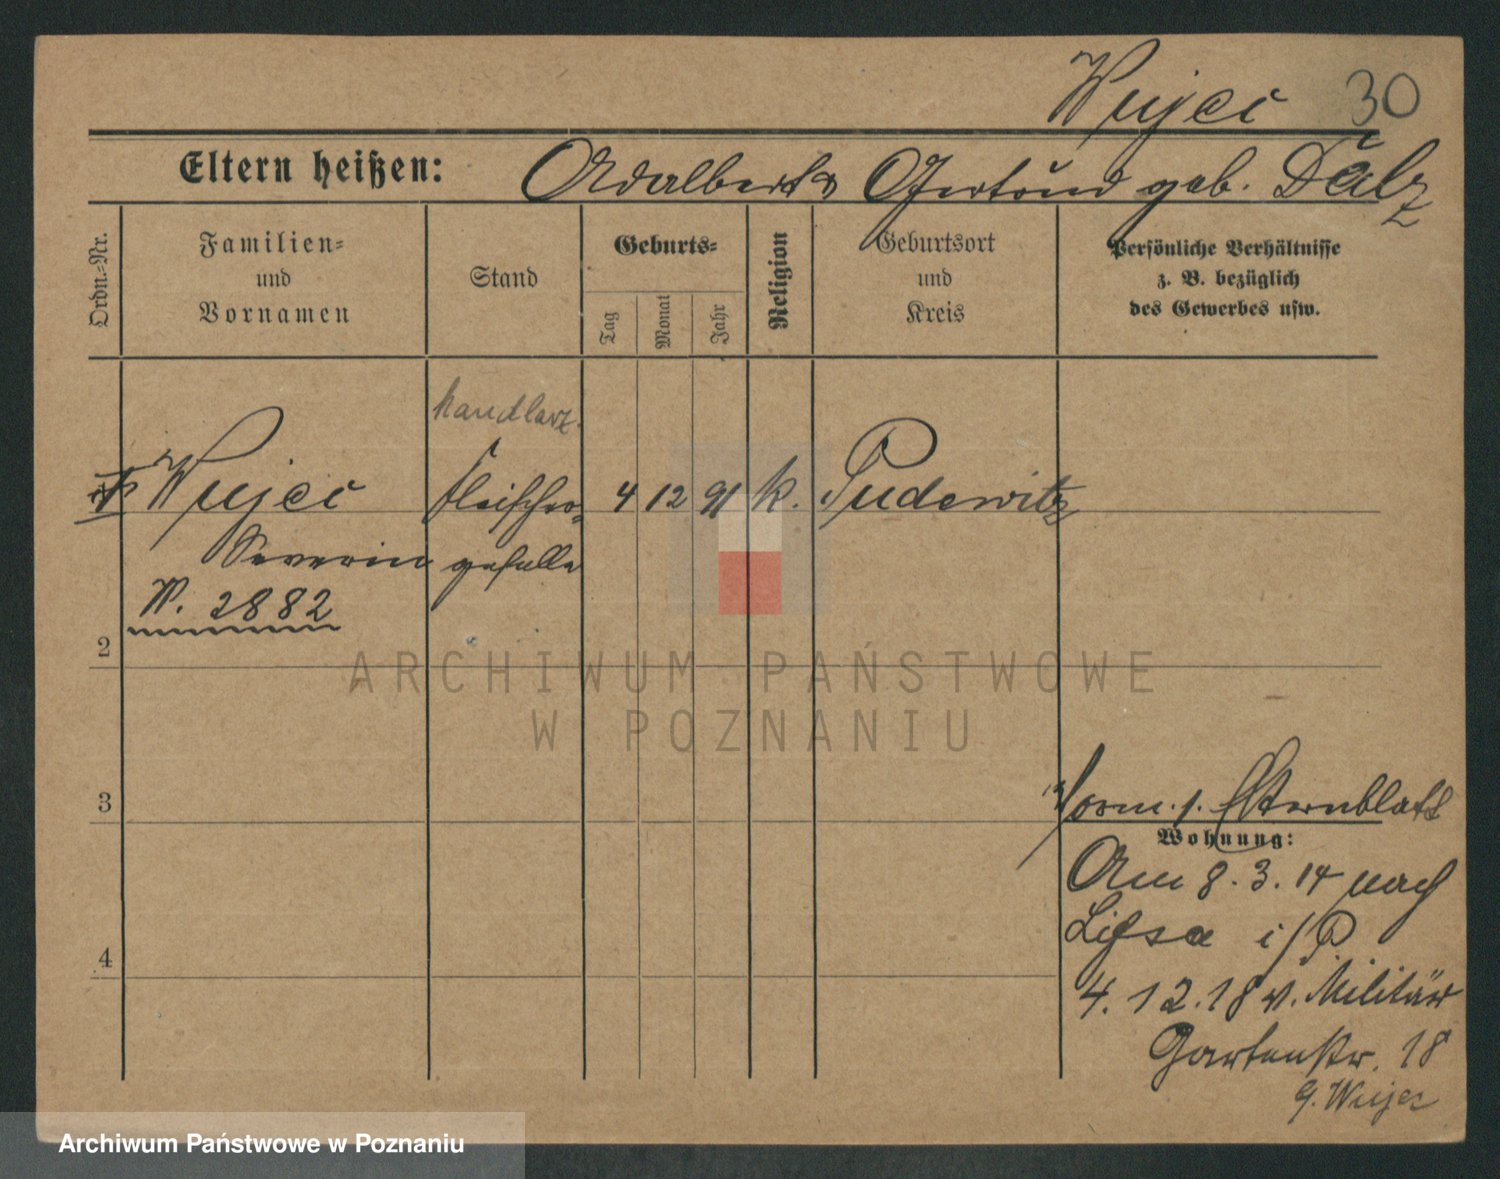 Wujec 30
Eltern heißen: Adalbert & Gertrud geb. Dalz
Ordn.-Nr.
Familien-
und
Vornamen
Stand
Geburts-
Tag
Monat
Jahr
Religion
Geburtsort
und
Kreis
Persönliche Verhältnisse
z. B. bezüglich
des Gewerbes usw.
handlarz
Wujec Fleischer- 4 12 91 k. Pudewitz
Severin geselle
W. 2882
2
3
4
Vorm. s. Elternblatt
Wohnung:
Am 8.3.14 nach
Lissa i/P.
4.12.18 v. Militär
Gartenstr. 18
Wujec
ARCHIWUM PAŃSTWOWE
W POZNANIU
Archiwum Państwowe w Poznaniu